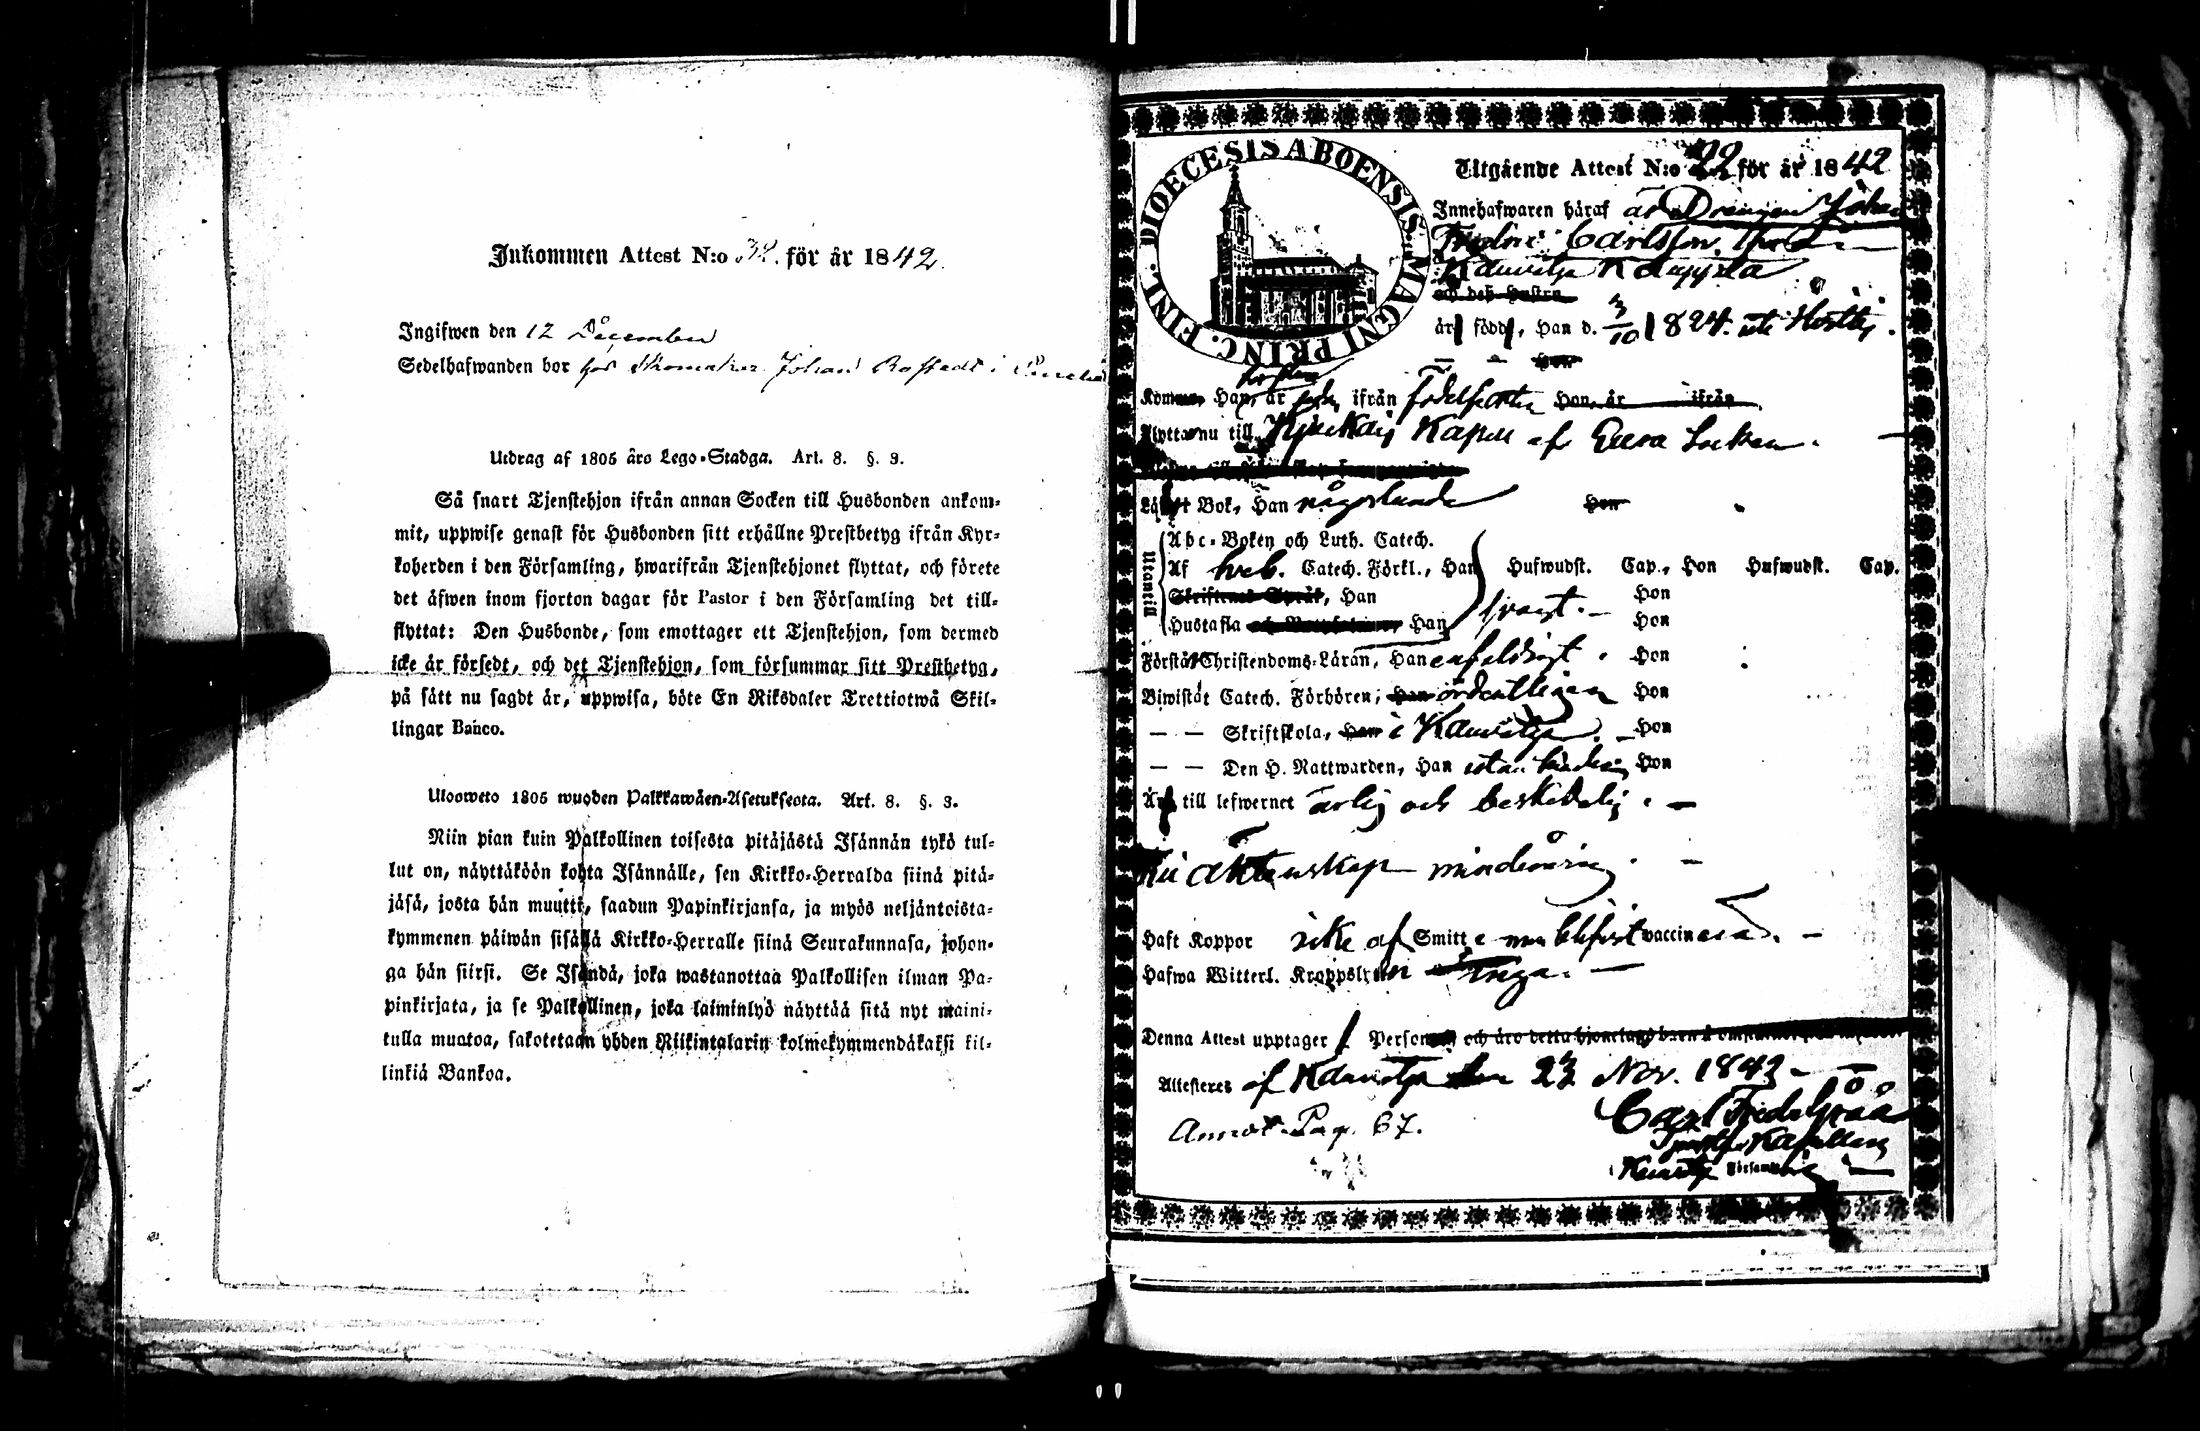 Inkommen Attest N:o 34. för år 1842.
Ingifwen den 12 December
Sedelhafwanden bor hos Skomakar Johan
Utdrag af 1805 års Lego-Stadga. Art. 8. §. 3.
Så snart Tjenstehjon ifrån annan Socken till Husbonden ankom-
mit, uppwise genast för Husbonden sitt erhållne Prestbetyg ifrån Kyr-
koherden i den Församling, hwarifrån Tjenstehjonet flyttat, och förete
det äfwen inom fjorton dagar för Pastor i den Församling det till-
flyttat: Den Husbonde, som emottager ett Tjenstehjon, som dermed
icke är försedt, och det Tjenstehjon, som försummar sitt Prestbetyg,
på sätt nu sagdt är, uppwisa, böte En Riksdaler Trettiotwå Skil-
lingar Banco.
Ulosweto 1805 wuoden Palkkawäen-Asetuksesta. Art. 8. §. 3.
Niin pian kuin Palkollinen toisesta pitäjästä Isännän tykö tul-
lut on, näyttäköön kohta Isännälle, sen Kirkko-Herralda siinä pitä-
jäsä, josta hän muutti, saadun Papinkirjansa, ja myös neljäntoista-
kymmenen päiwän sisällä Kirkko-Herralle siinä Seurakunnasa, johon-
ga hän siirsi. Se Isändä, joka wastanottaa Palkollisen ilman Pa-
pinkirjata, ja se Palkollinen, joka laiminlyö näyttää sitä nyt maini-
tulla muotoa, sakotetaan yhden Riikintalarin kolmekymmendäkaksi kil-
linkiä Bankoa.
DIOECESIS ABOENSIS MAGNI PRINC. FINL.
Utgående Attest N:o 22 för år 1842
Innehafwaren häraf är Drengen Johan
Carlsson
Kauvatsa
och deß Hustru
är född, Han d. 3/10 1824.
Hon
Kommen Han, är ifrån födelseorten Hon, är ifrån
Flyttar nu till Kjulkais Kapell af Eura Socken.
Läser i Bok, Han någorlunda Hon
Utantill
Abc-Boken och Luth. Catech.
Af Catech. Förkl., Han Hufwudst. Cap., Hon Hufwudst. Cap.
Skriftenes Språk, Han Hon
Hustafla Han svagt. Hon
Förstår Christendoms-Läran, Han enfaldigt. Hon
Biwistat Catech. Förhören, Han ordentligen Hon
— — Skriftskola, Han i Kauvatsa. Hon
— — Den H. Nattwarden, Han utan hinder Hon
Är till lefwernet ärlig och beskedelig.
Till äktenskap minderårig.
Haft Koppor icke af Smitt vaccinerad.
Hafwa Witterl. Kroppslyten inga.
Denna Attest upptager 1 Person
Attesteras af Kauvatsa den 23 Nov. 1842
Annot. Pag. 67.
Carl Fredr.
Församling